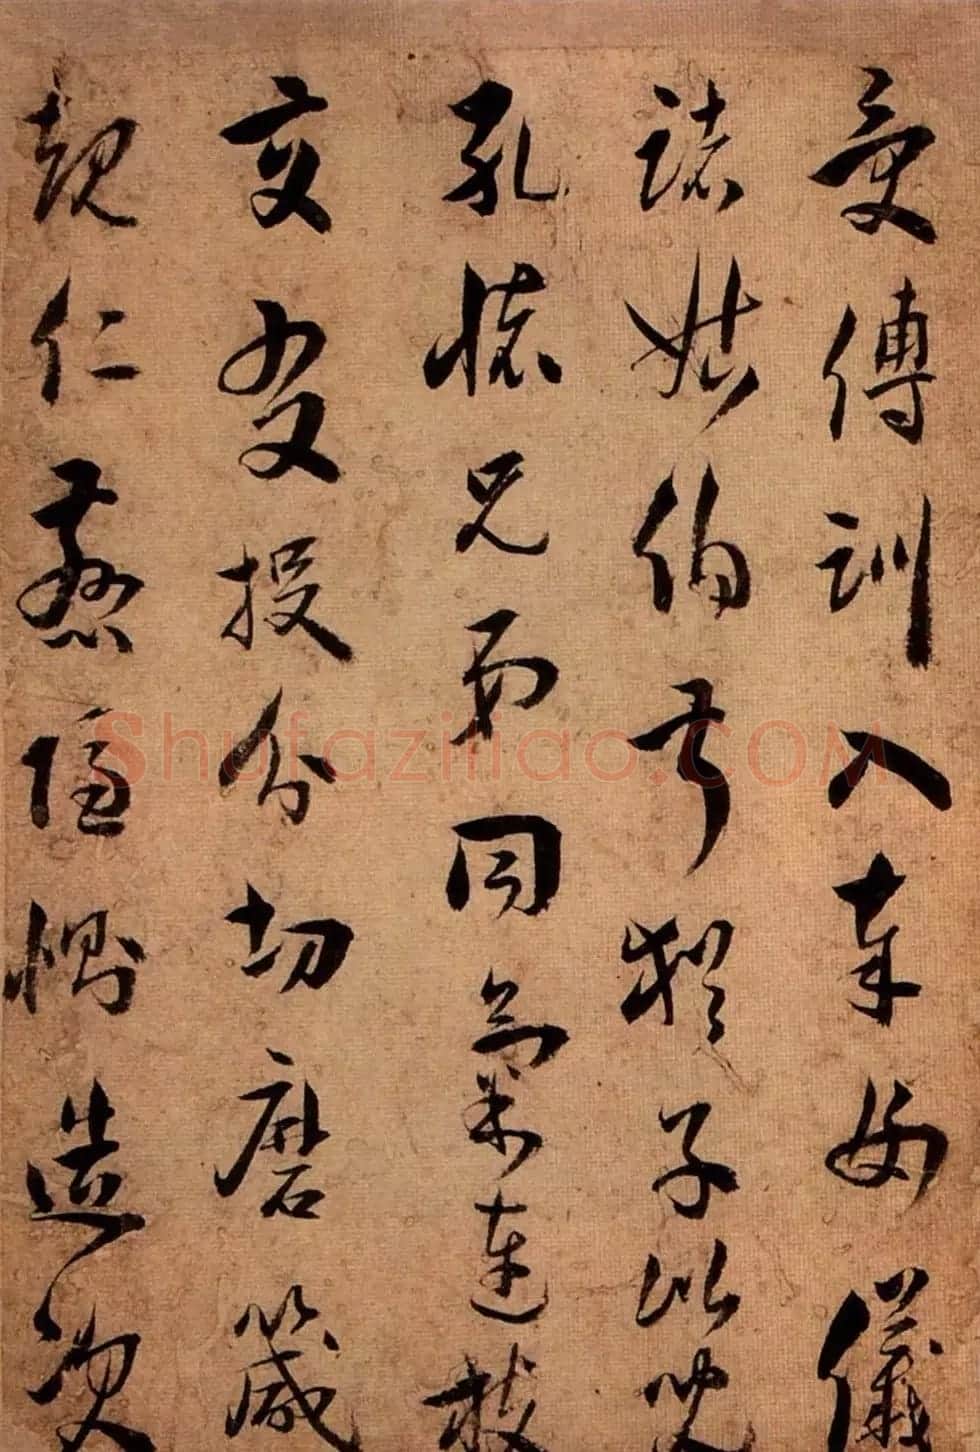 受傅訓入奉母儀
諸姑伯叔猶子比兒
孔懷兄弟同氣連枝
交友投分切磨箴
規仁慈隱惻造次
Shufaziliao.COM